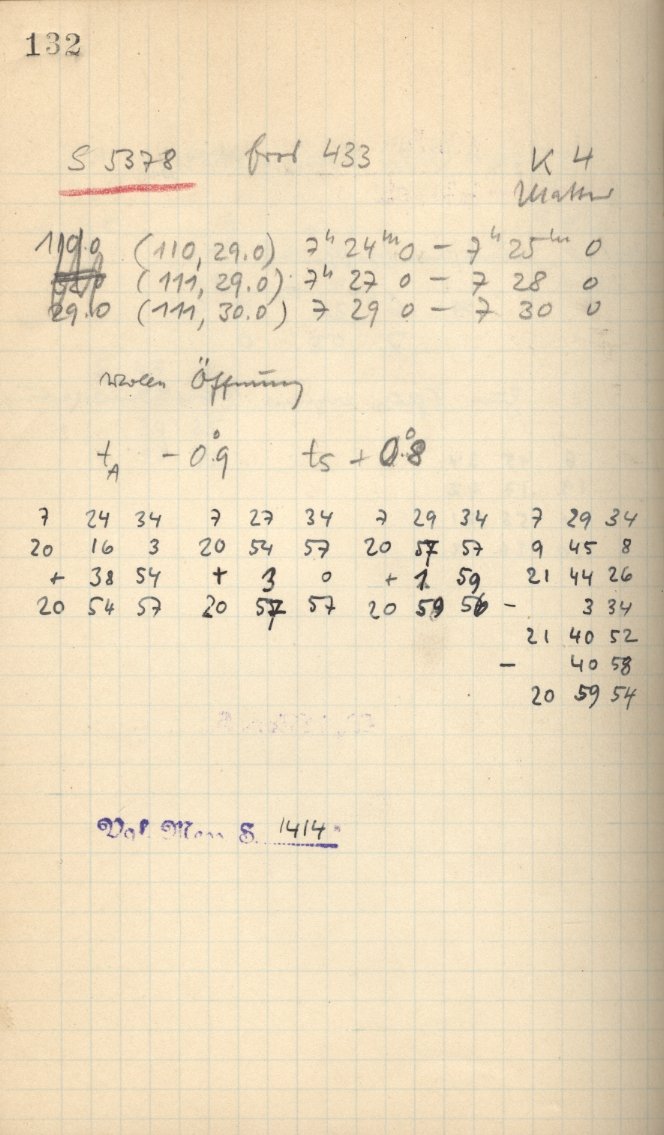 132
S 5378 433 K 4
110.0 (110, 29.0) 7h 24m 0 – 7h 25m 0
(111, 29.0) 7h 27 0 – 7 28 0
29.0 (111, 30.0) 7 29 0 – 7 30 0
Öffnung
tA – 0°.9 ts + 0°.8
7 24 34 7 27 34 7 29 34 7 29 34
20 16 3 20 54 57 20 57 57 9 45 8
+ 38 54 + 3 0 + 1 59 21 44 26
20 54 57 20 57 57 20 59 56 – 3 34
21 40 52
– 40 58
20 59 54
S. 1414